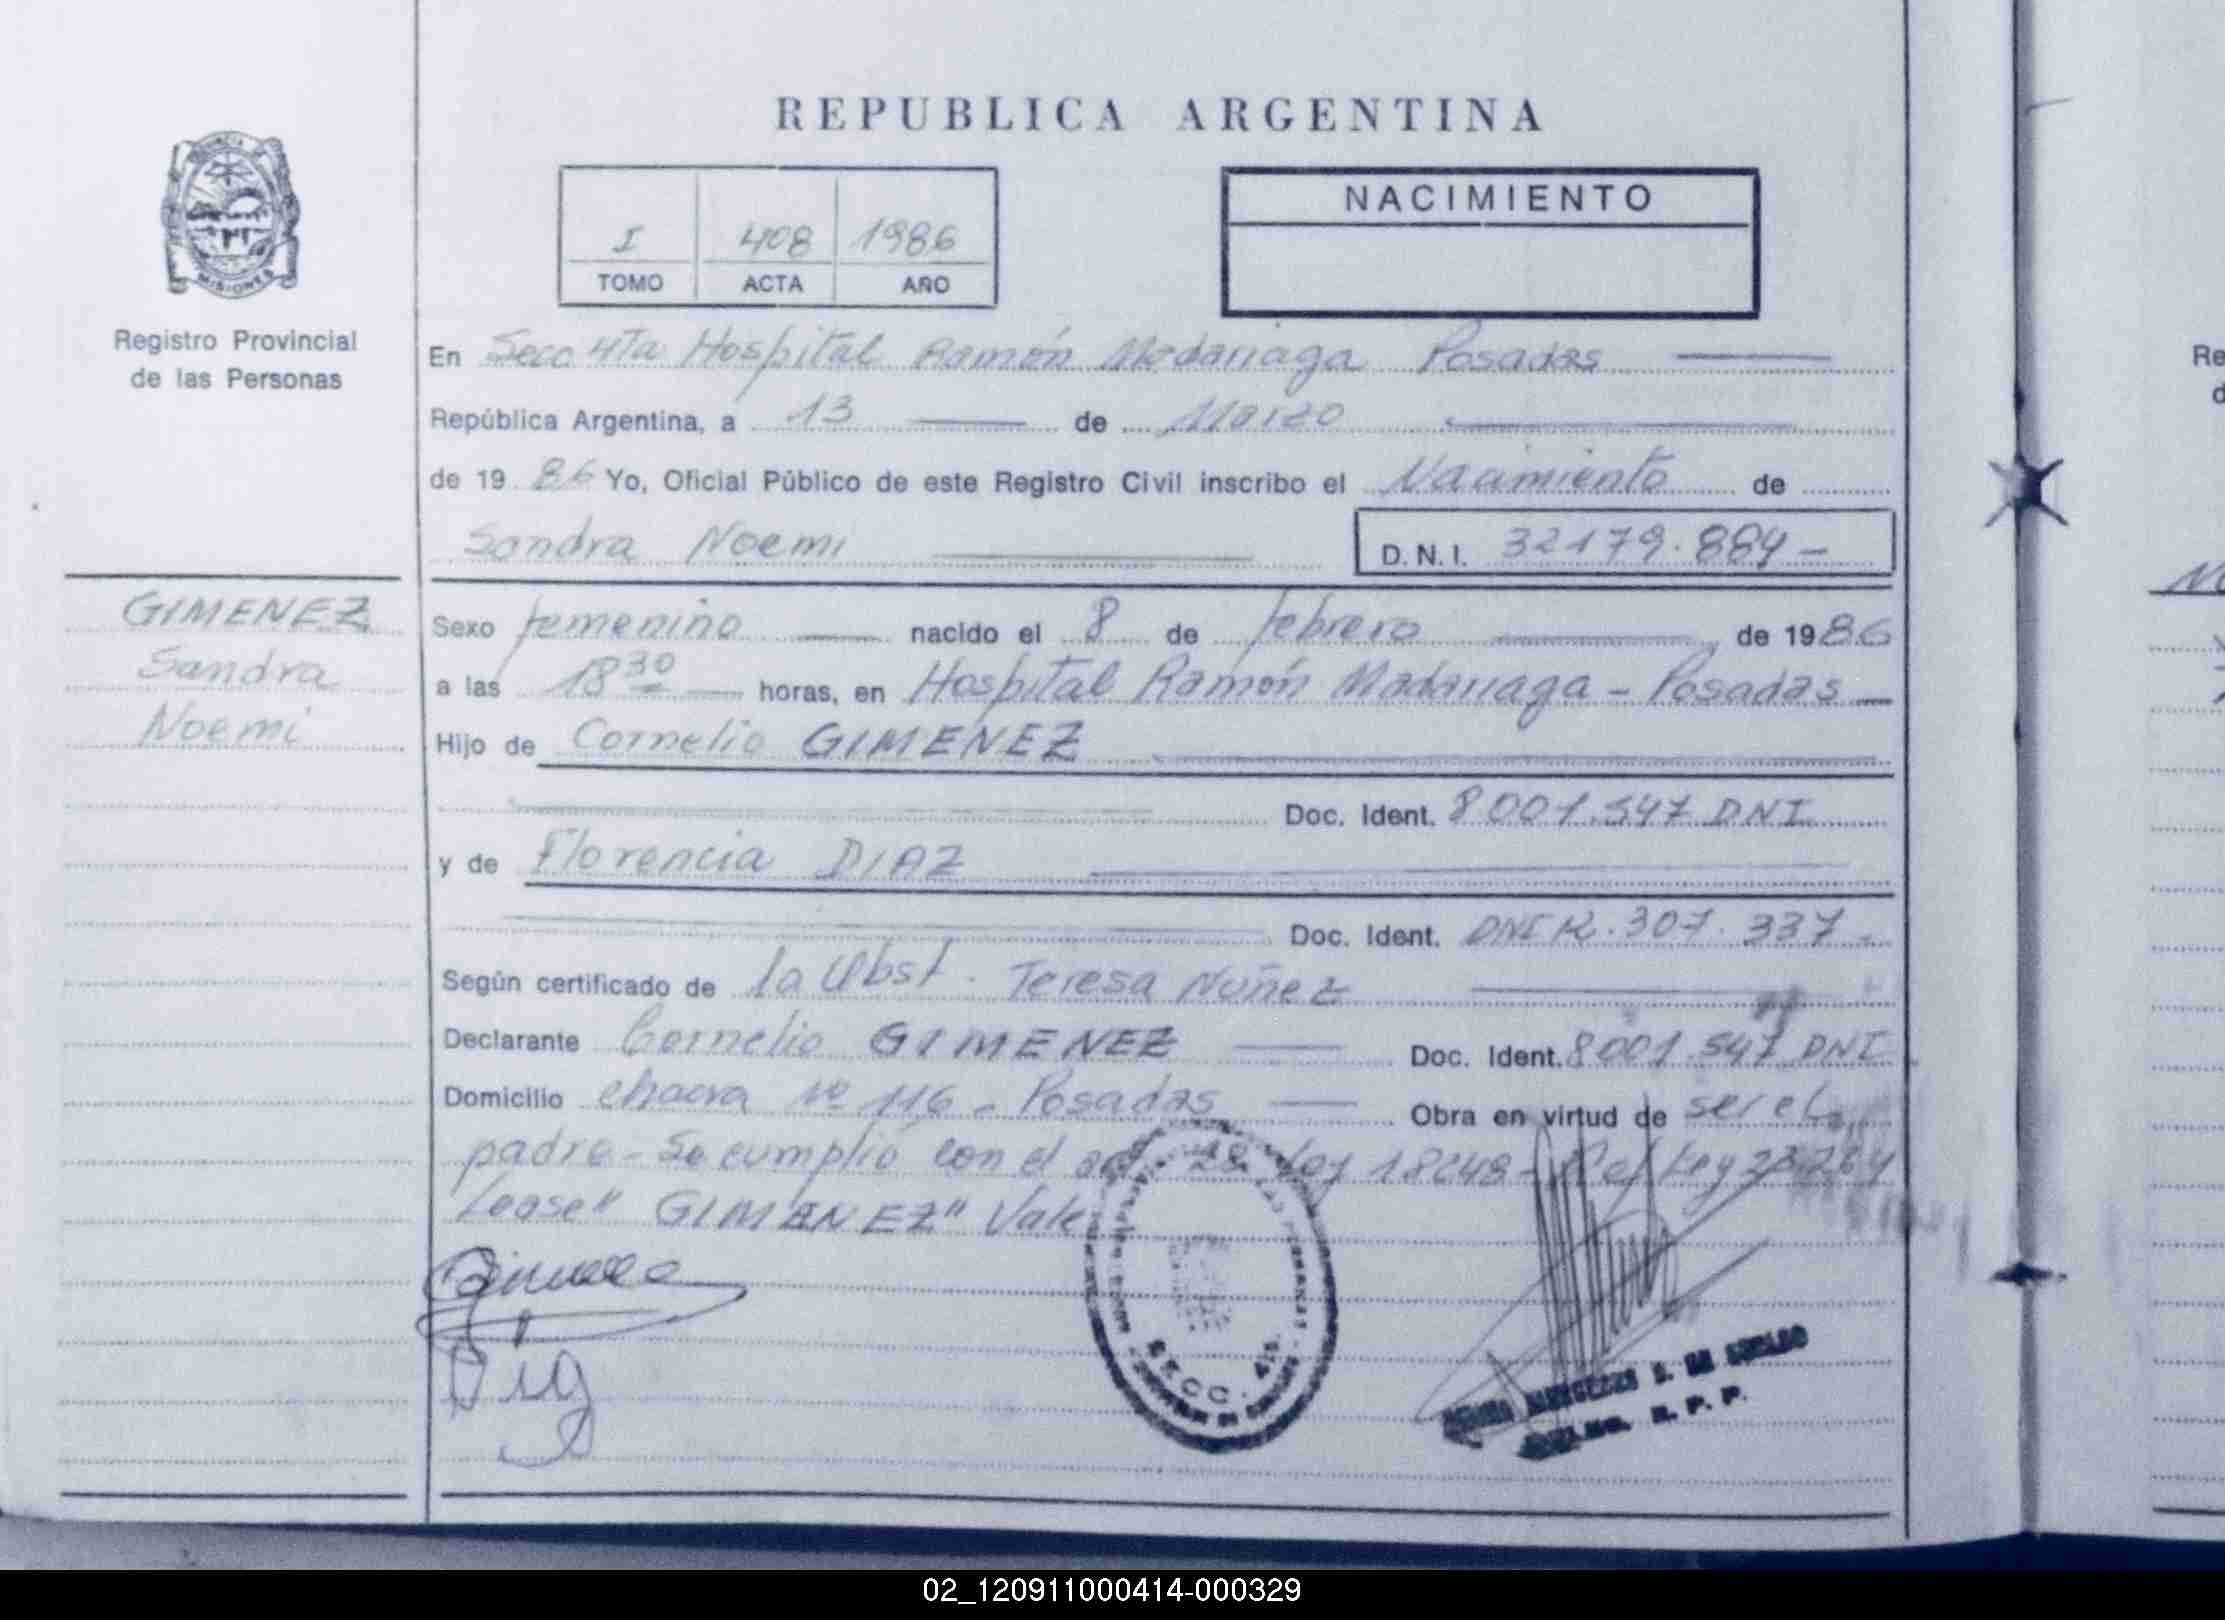 REPUBLICA ARGENTINA
PROVINCIA DE MISIONES
Registro Provincial
de las Personas
I 408 1986
TOMO ACTA AÑO
NACIMIENTO
En Secc 4Ta Hospital Ramón Madariaga Posadas
República Argentina, a 13 de Marzo
de 1986 Yo, Oficial Público de este Registro Civil inscribo el Nacimiento de
Sandra Noemi D.N.I. 32179.884-
GIMENEZ
Sandra
Noemi
Sexo femenino nacido el 8 de febrero de 1986
a las 18 30 horas, en Hospital Ramón Madariaga - Posadas
Hijo de Cornelio GIMENEZ
Doc. Ident. 8001.547 DNI
y de Florencia DIAZ
Doc. Ident. DNI 307.337-
Según certificado de la Obst. Teresa Nuñez
Declarante Cornelio GIMENEZ Doc. Ident. 8001.547 DNI
Domicilio chacra Nº 116 - Posadas Obra en virtud de ser el
padre - Se cumplió con el Ley 18248 - Ley 23264
Lease "GIMENEZ" Vale
SECC. 4ta.
R. P. P.
02_120911000414-000329